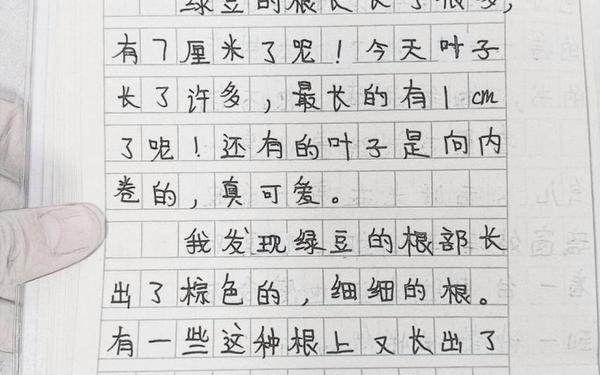 绿豆的根长长了很多,
有7厘米了呢!今天叶子
长了许多,最长的有1cm
了呢!还有的叶子是向内
卷的,真可爱。
我发现绿豆的根部长
出了棕色的,细细的根。
有一些这种根上又长出了